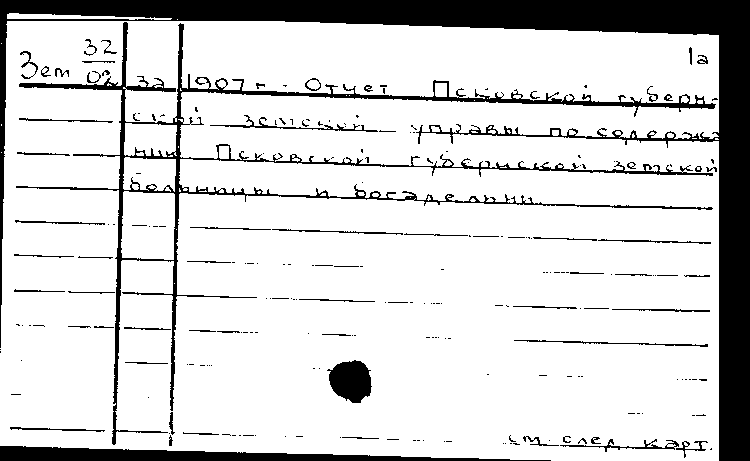 32 1а
Зем 02 за 1907 г. Отчет Псковской губерн-
ской земской управы по содержа
нию Псковской губернской земской
больницы и богадельни.
см. след. карт.